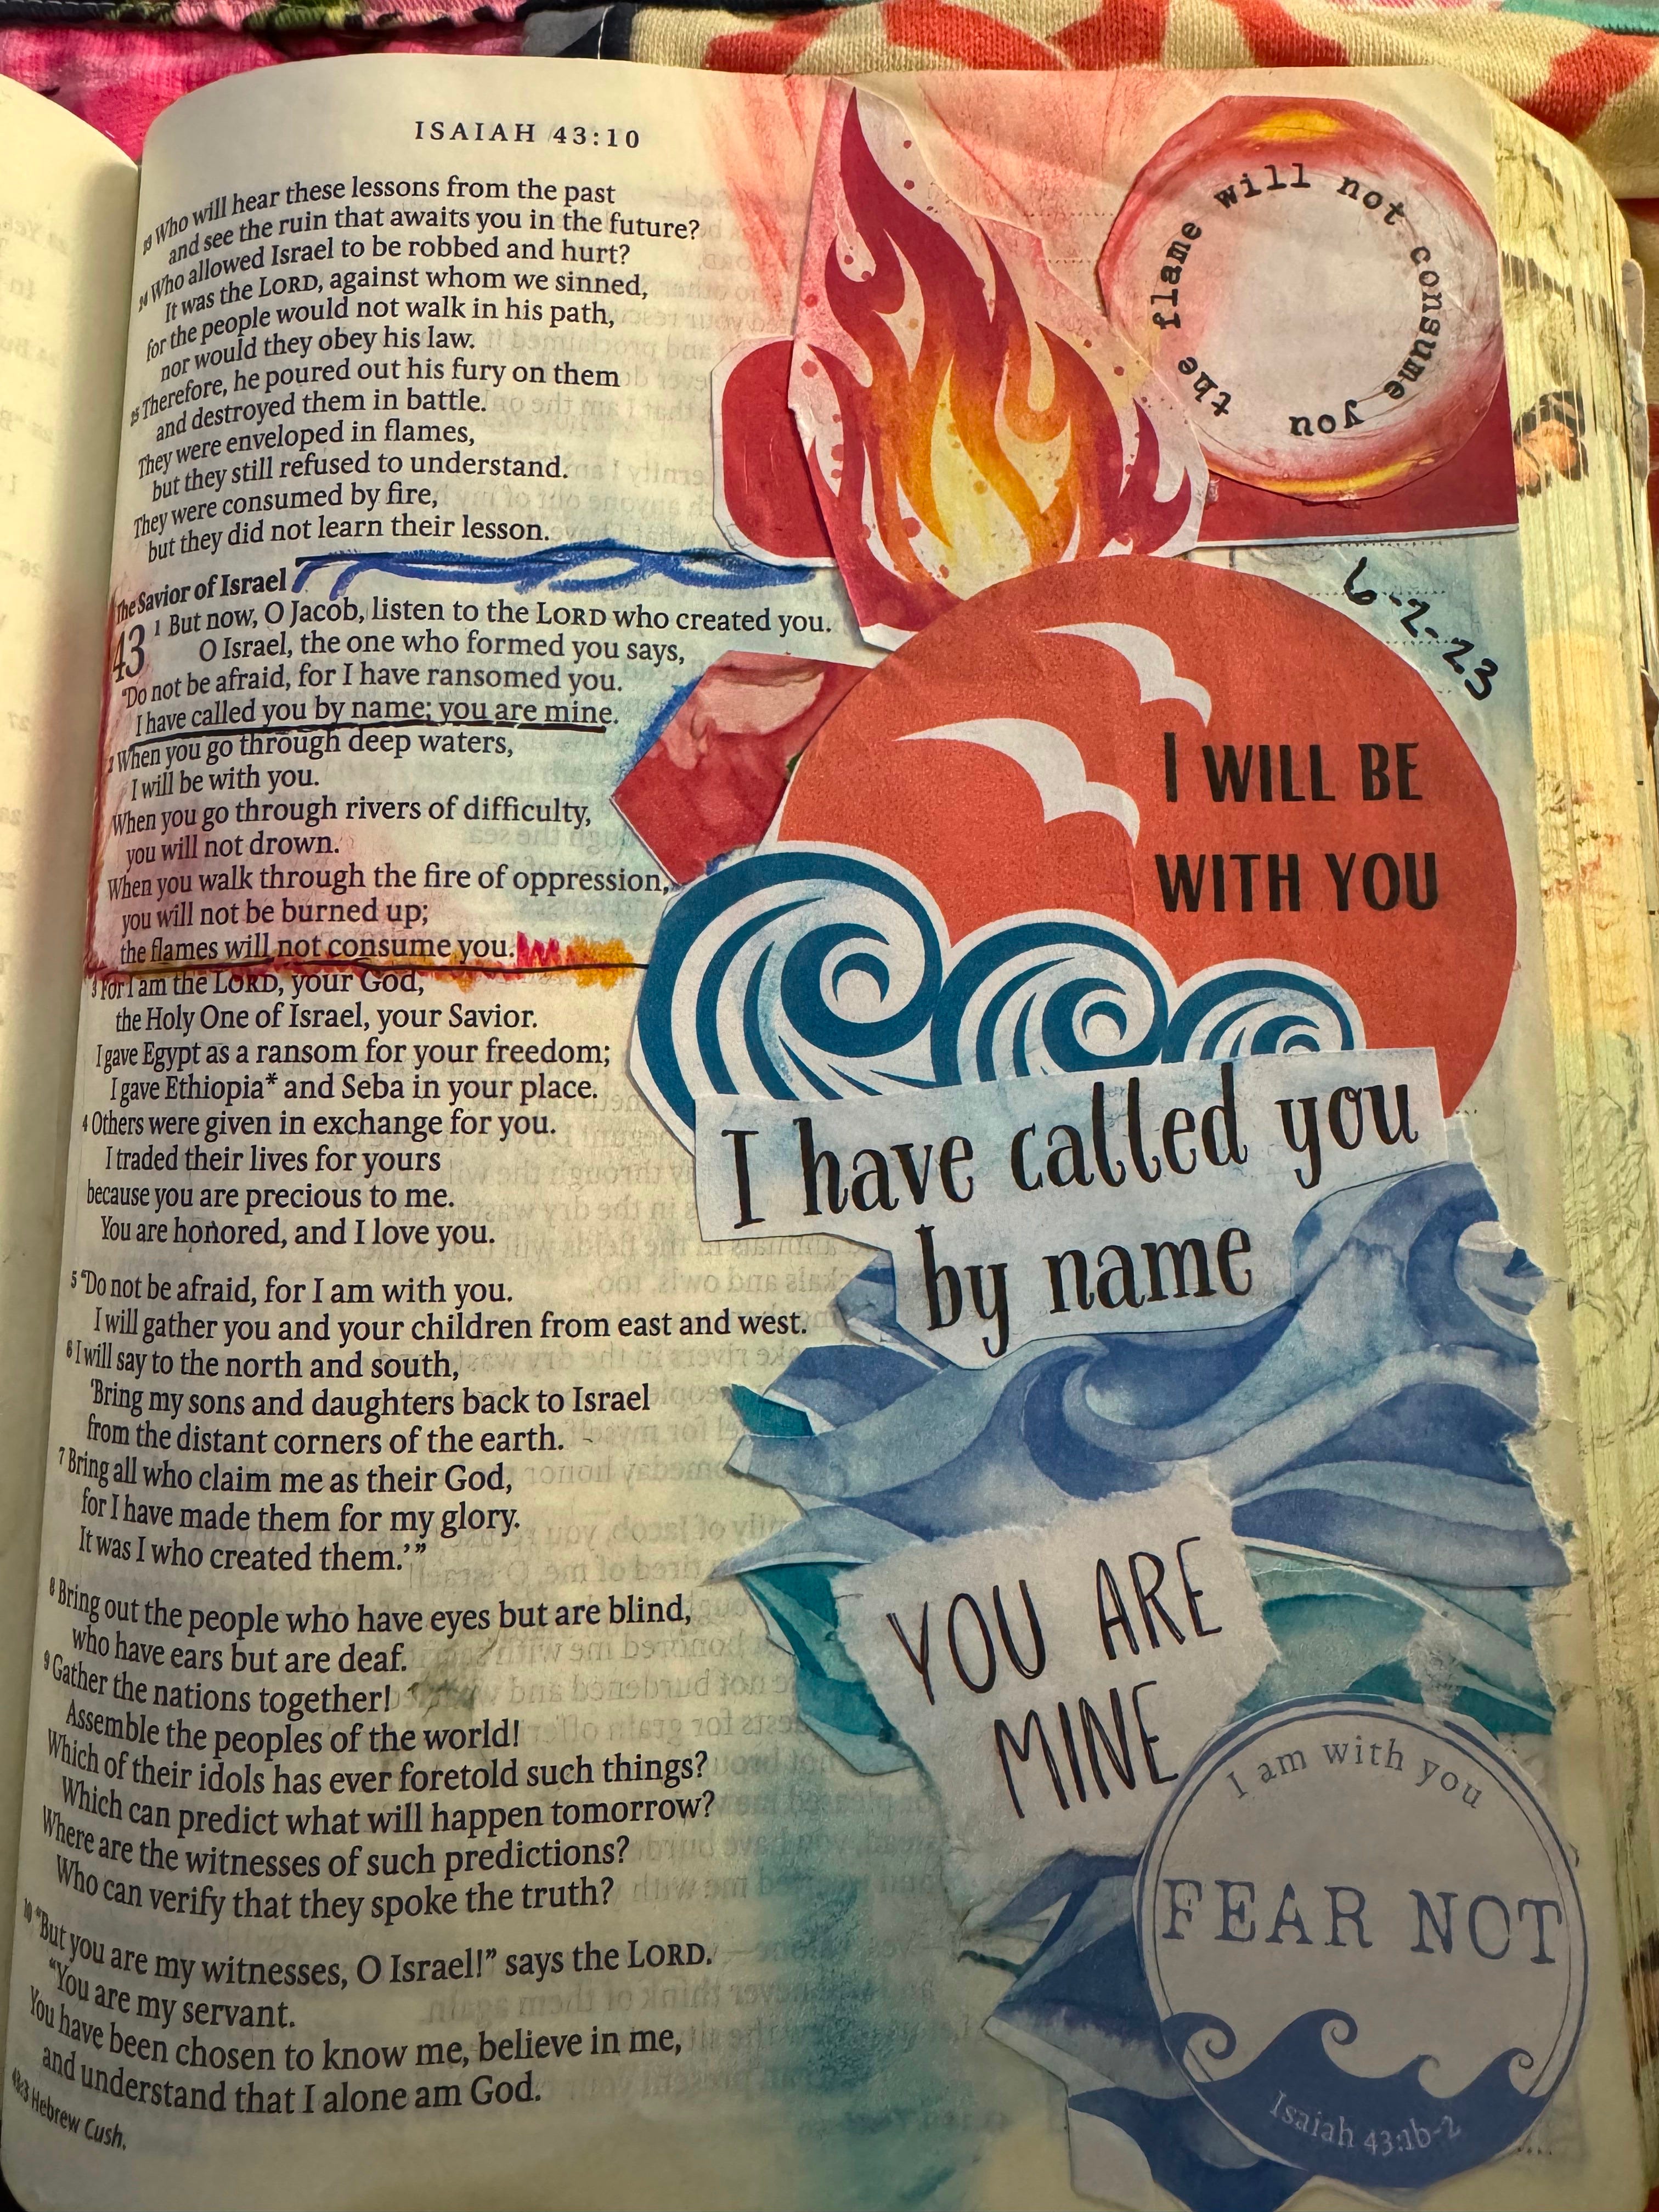 ISAIAH 43:10
23 Who will hear these lessons from the past
and see the ruin that awaits you in the future?
24 Who allowed Israel to be robbed and hurt?
It was the LORD, against whom we sinned,
for the people would not walk in his path,
nor would they obey his law.
25 Therefore, he poured out his fury on them
and destroyed them in battle.
They were enveloped in flames,
but they still refused to understand.
They were consumed by fire,
but they did not learn their lesson.
The Savior of Israel
43
1 But now, O Jacob, listen to the LORD who created you.
O Israel, the one who formed you says,
“Do not be afraid, for I have ransomed you.
I have called you by name; you are mine.
2 When you go through deep waters,
I will be with you.
When you go through rivers of difficulty,
you will not drown.
When you walk through the fire of oppression,
you will not be burned up;
the flames will not consume you.
3 For I am the LORD, your God,
the Holy One of Israel, your Savior.
I gave Egypt as a ransom for your freedom;
I gave Ethiopia* and Seba in your place.
4 Others were given in exchange for you.
I traded their lives for yours
because you are precious to me.
You are honored, and I love you.
5 “Do not be afraid, for I am with you.
I will gather you and your children from east and west.
6 I will say to the north and south,
‘Bring my sons and daughters back to Israel
from the distant corners of the earth.
7 Bring all who claim me as their God,
for I have made them for my glory.
It was I who created them.’”
8 Bring out the people who have eyes but are blind,
who have ears but are deaf.
9 Gather the nations together!
Assemble the peoples of the world!
Which of their idols has ever foretold such things?
Which can predict what will happen tomorrow?
Where are the witnesses of such predictions?
Who can verify that they spoke the truth?
10 “But you are my witnesses, O Israel!” says the LORD.
“You are my servant.
You have been chosen to know me, believe in me,
and understand that I alone am God.
43:3 Hebrew Cush.
the flame will not consume you
6-2-23
I WILL BE
WITH YOU
I have called you
by name
YOU ARE
MINE
I am with you
FEAR NOT
Isaiah 43:1b-2